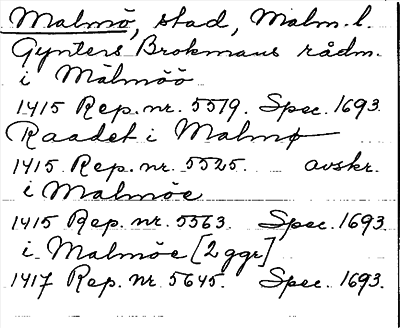 Malmö, stad, Malm. l.
Gynters Brokmans rådm.
i Målmöö
1415 Rep. nr. 5519. Spec. 1693.
Raadet i Malmø
1415 Rep. nr. 5525. avskr.
i Malmöe
1415 Rep. nr. 5563. Spec. 1693.
i Malmöe [2 ggr]
1417 Rep. nr 5645. Spec. 1693.